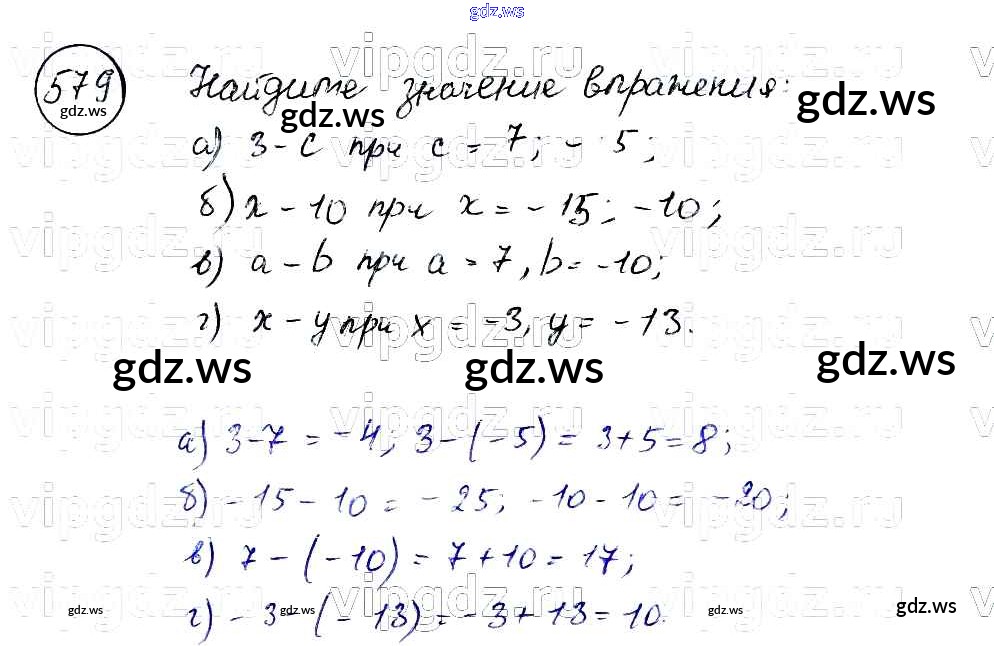 gdz.ws
579 Найдите значение выражения:
а) 3 - с при с = 7; - 5;
б) х - 10 при х = - 15; -10;
в) а - b при а = 7, b = -10;
г) х - у при х = -3, у = -13.
gdz.ws gdz.ws gdz.ws
а) 3-7 = -4; 3-(-5) = 3+5=8;
б) -15-10 = -25; -10-10 = -20;
в) 7-(-10) = 7+10 = 17;
г) -3-(-13) = -3+13=10.
gdz.ws gdz.ws gdz.ws gdz.ws